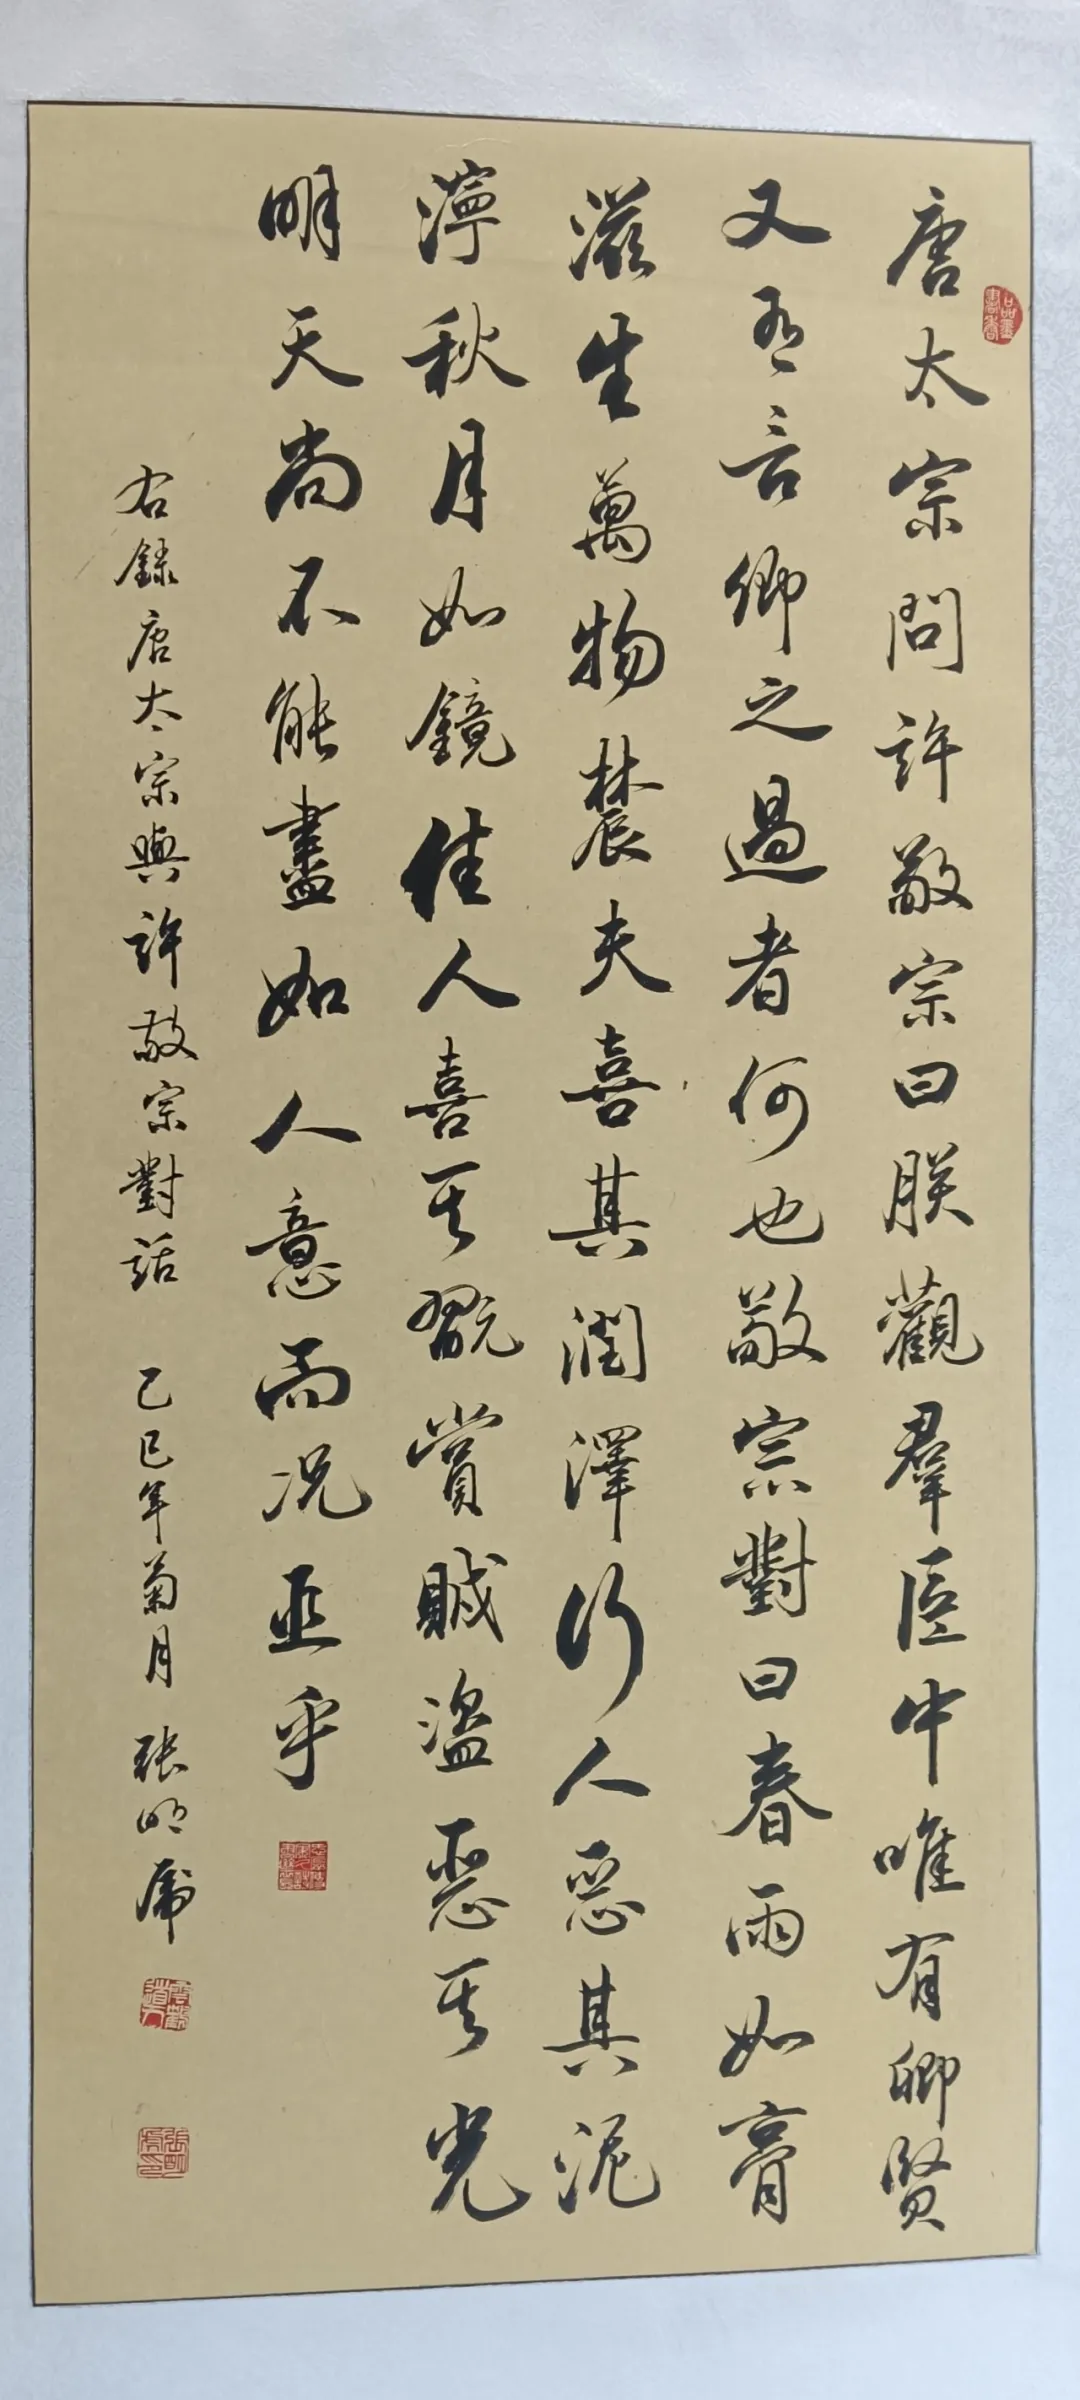 唐太宗問許敬宗曰朕觀羣臣中唯有卿賢
又有言卿之過者何也敬宗對曰春雨如膏
滋生萬物農夫喜其潤澤行人惡其泥
濘秋月如鏡佳人喜其翫賞賊盜惡其光
明天尚不能盡如人意而况臣乎
右録唐太宗與許敬宗對話 乙巳年菊月 張明虎